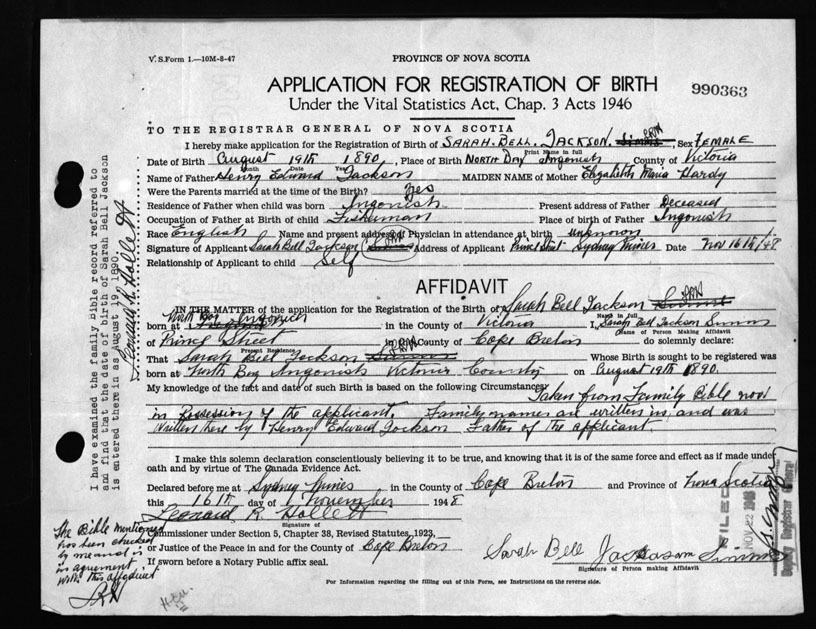 V. S. Form 1.—10M-8-47
PROVINCE OF NOVA SCOTIA
APPLICATION FOR REGISTRATION OF BIRTH
990363
Under the Vital Statistics Act, Chap. 3 Acts 1946
TO THE REGISTRAR GENERAL OF NOVA SCOTIA
I hereby make application for the Registration of Birth of SARAH. BELL. JACKSON. Simms LRH Sex FEMALE
Print Name in full
Date of Birth August 19th 1890, Place of Birth North Bay Ingonish County of Victoria
Month Date Year
Name of Father Henry Edward Jackson MAIDEN NAME of Mother Elizabeth Maria Hardy
Were the Parents married at the time of the Birth? Yes
Residence of Father when child was born Ingonish Present address of Father Deceased
Occupation of Father at Birth of child Fisherman Place of birth of Father Ingonish
Race English Name and present address of Physician in attendance at birth unknown
Signature of Applicant Sarah Bell Jackson Simms LRH Address of Applicant Prince Street Sydney Mines Date Nov 16th/48
Relationship of Applicant to child Self
AFFIDAVIT
IN THE MATTER of the application for the Registration of the Birth of Sarah Bell Jackson Simms LRH
Name in full
born at North Bay Ingonish in the County of Victoria I, Sarah Bell Jackson Simms
Name of Person Making Affidavit
of Prince Street in the County of Cape Breton do solemnly declare:
Present Residence
That Sarah Bell Jackson Simms LRH Whose Birth is sought to be registered was
born at North Bay Ingonish Victoria County on August 19th 1890.
My knowledge of the fact and date of such Birth is based on the following Circumstances: Taken from Family Bible now
in Possession of the applicant. Family names are written in, and was
written there by Henry Edward Jackson Father of the applicant.
I make this solemn declaration conscientiously believing it to be true, and knowing that it is of the same force and effect as if made under
oath and by virtue of The Canada Evidence Act.
Declared before me at Sydney Mines in the County of Cape Breton and Province of Nova Scotia
this 16th day of November 1948
Leonard R. Hollett
Signature of
Commissioner under Section 5, Chapter 38, Revised Statutes, 1923,
or Justice of the Peace in and for the County of Cape Breton
If sworn before a Notary Public affix seal.
Sarah Bell Jackson Simms
Signature of Person making Affidavit
For Information regarding the filling out of this Form, see Instructions on the reverse side.
I have examined the family Bible record referred to
and find that the date of birth of Sarah Bell Jackson
is entered therein as August 19, 1890.
Leonard R Hollett
The Bible Mentioned
has been checked
by me and is
in agreement
with this affidavit
LRH
FILED
NOV 22 1948
Deputy Registrar General